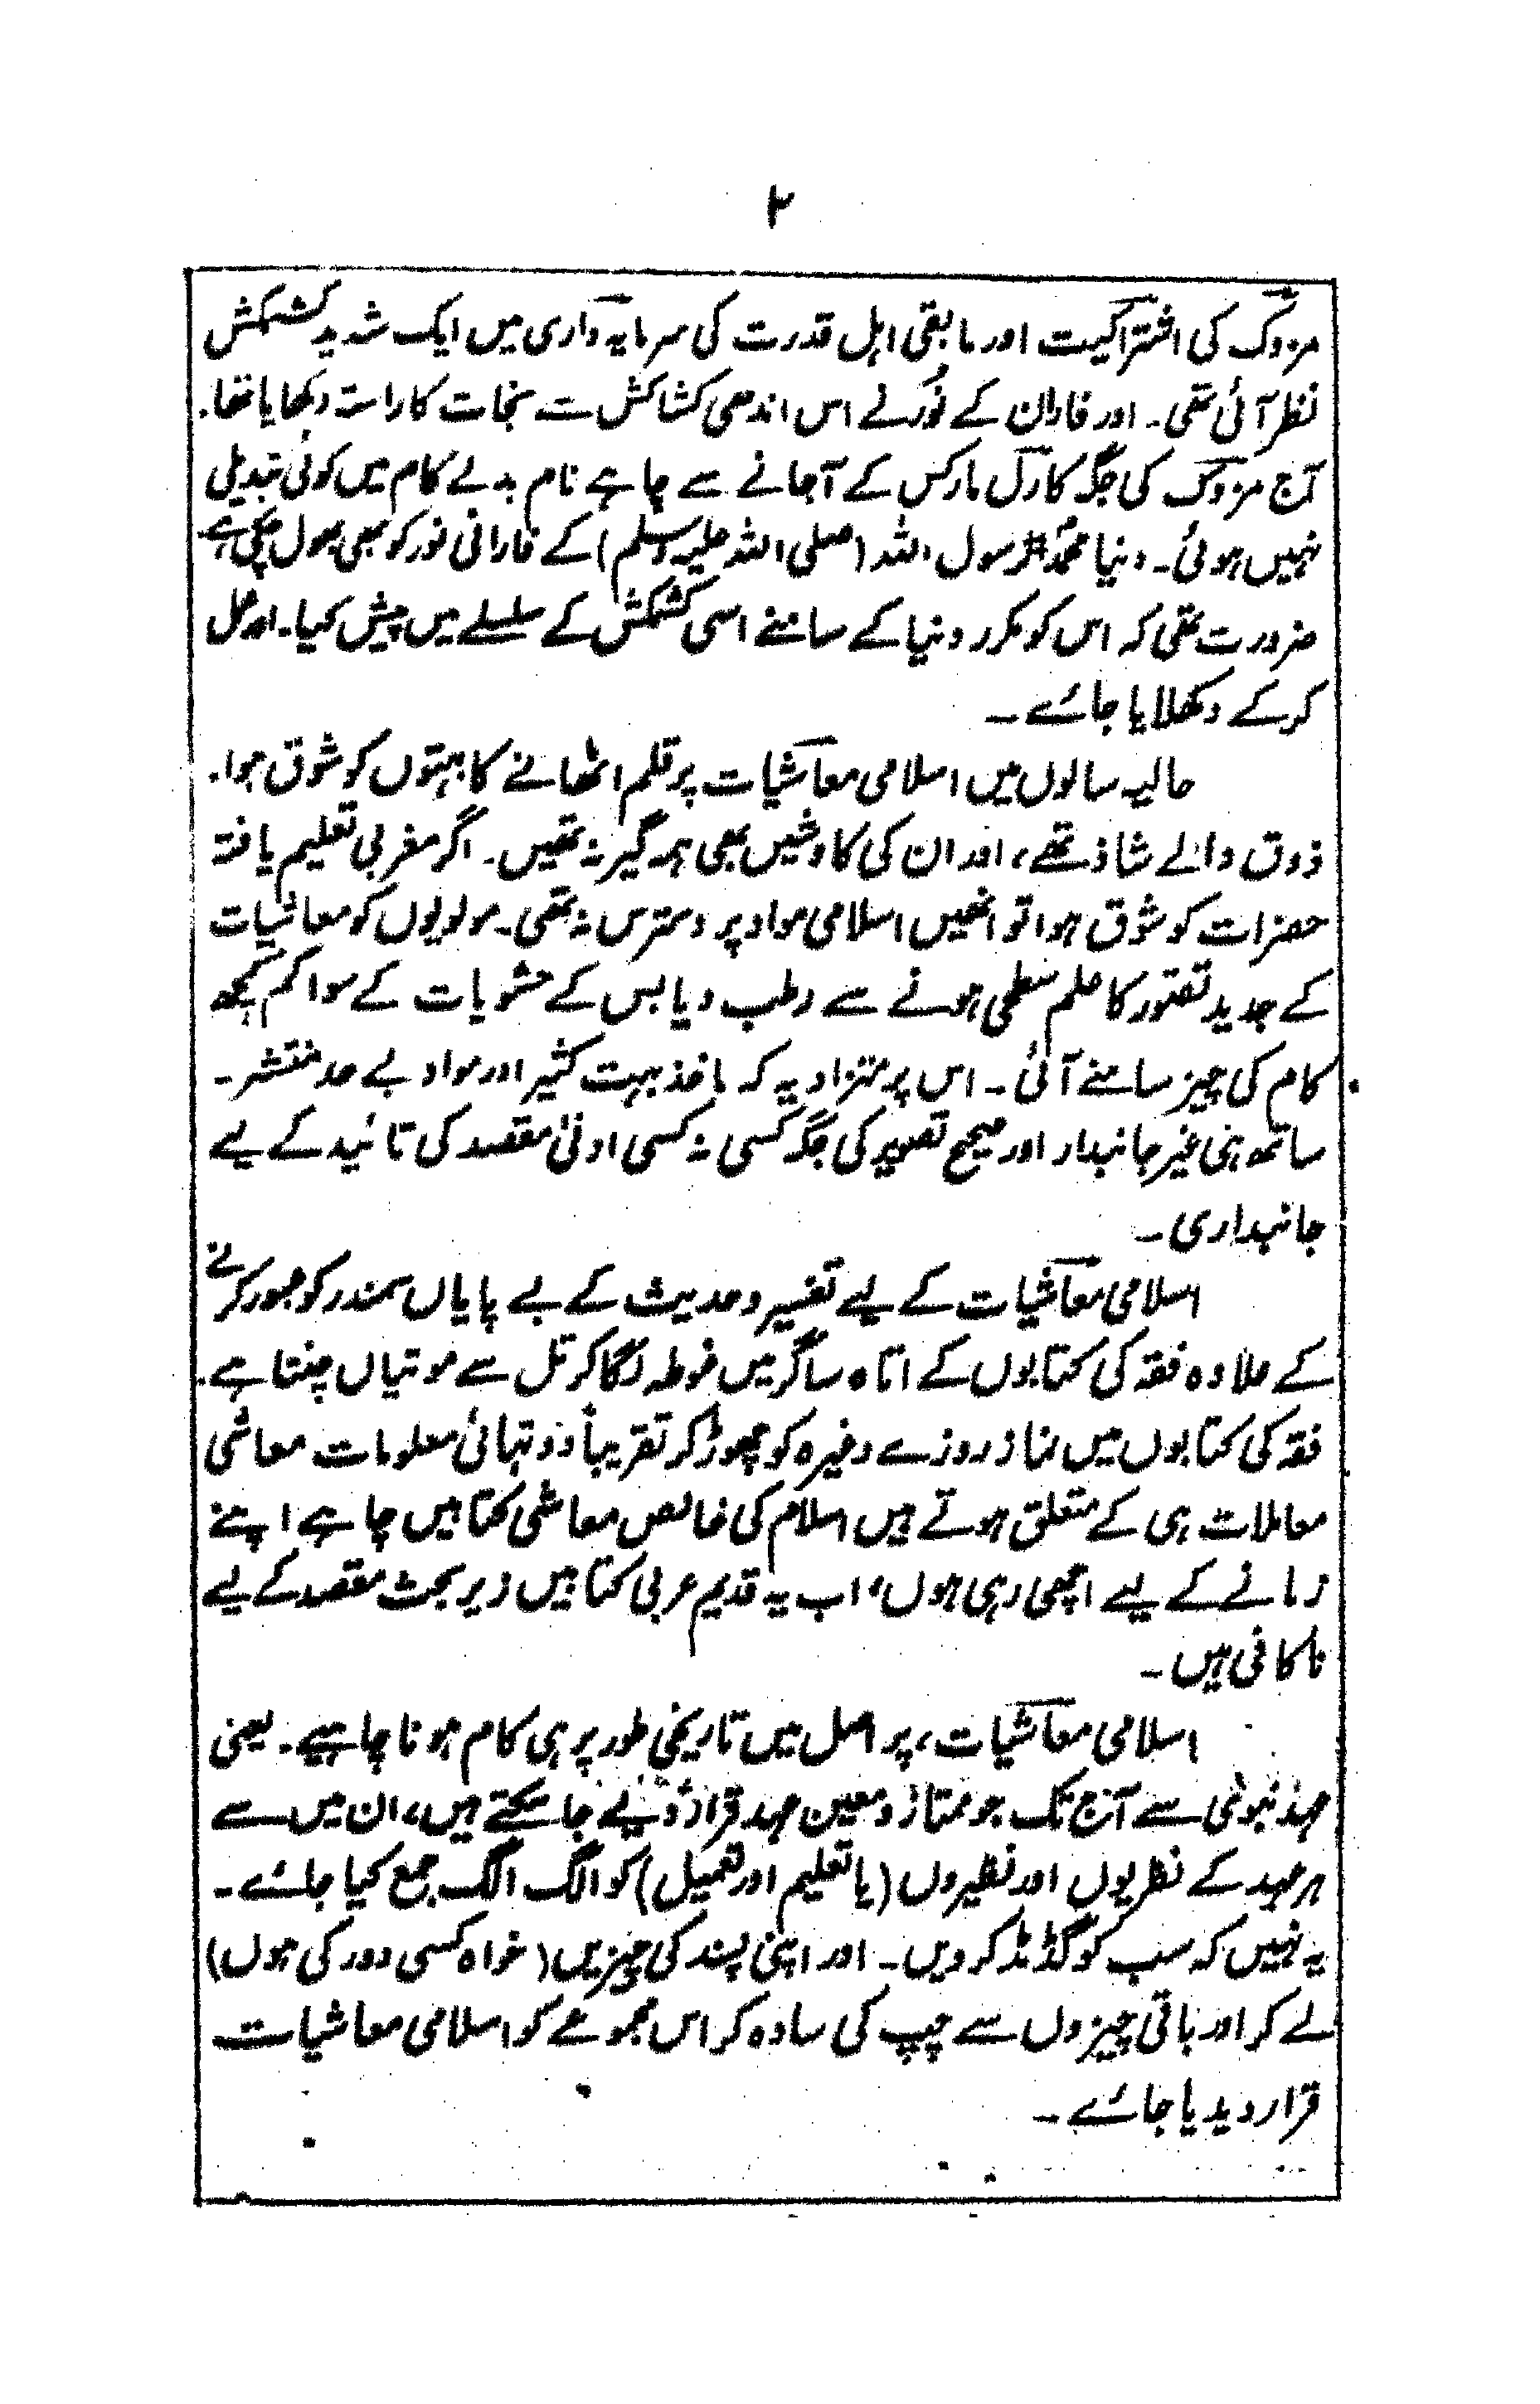 ۲
مزدک کی اشتراکیت اور مابقی اہل قدرت کی سرمایہ داری میں ایک شدید کشمکش
نظر آئی تھی۔ اور فاران کے نُور نے اس اندھی کشاکش سے نجات کا راستہ دکھایا تھا۔
آج مزدک کی جگہ کارل مارکس کے آجانے سے چاہے نام بدلے کام میں کوئی تبدیلی
نہیں ہوئی۔ دنیا محمدؐ رسول اللہ (صلی اللہ علیہ وسلم) کے فارانی نور کو بھی بھول چکی ہے
ضرورت تھی کہ اس کو مکرر دنیا کے سامنے اسی کشمکش کے سلسلے میں پیش کیا۔ اور حل
کرکے دکھلایا جائے۔
حالیہ سالوں میں اسلامی معاشیات پر قلم اٹھانے کا بہتوں کو شوق ہوا۔
ذوق والے شاذ تھے، اور ان کی کاوشیں بھی ہمہ گیر نہ تھیں۔ اگر مغربی تعلیم یافتہ
حضرات کو شوق ہوا تو انھیں اسلامی مواد پر دسترس نہ تھی۔ مولویوں کو معاشیات
کے جدید تصور کا علم سطحی ہونے سے رطب و یابس کے حشویات کے سوا کم کچھ
کام کی چیز سامنے آئی۔ اس پر مستزاد یہ کہ ماخذ بہت کثیر اور مواد بے حد منتشر۔
ساتھ ہی غیر جانبدار اور صحیح تصویر کی جگہ کسی نہ کسی ادنیٰ مقصد کی تائید کے لیے
جانبداری۔
اسلامی معاشیات کے لیے تفسیر و حدیث کے بے پایاں سمندر کو عبور کرنے
کے علاوہ فقہ کی کتابوں کے اتاہ ساگر میں غوطہ لگا کر تل سے موتیاں چننا ہے۔
فقہ کی کتابوں میں نماز روزے وغیرہ کو چھوڑ کر تقریباً دو تہائی معلومات معاشی
معاملات ہی کے متعلق ہوتے ہیں اسلام کی خالص معاشی کتابیں چاہے اپنے
زمانے کے لیے اچھی رہی ہوں، اب یہ قدیم عربی کتابیں زیر بحث مقصد کے لیے
ناکافی ہیں۔
اسلامی معاشیات، پر اصل میں تاریخی طور پر ہی کام ہونا چاہیے۔ یعنی
عہد نبویؐ سے آج تک جو ممتاز و معین عہد قرار دیے جا سکتے ہیں، ان میں سے
ہر عہد کے نظریوں اور نظیروں (یا تعلیم اور تعمیل) کو الگ الگ جمع کیا جائے۔
یہ نہیں کہ سب کو گڈ مڈ کردیں۔ اور اپنی پسند کی چیزیں (خواہ کسی دور کی ہوں)
لے کر اور باقی چیزوں سے چپ کی سادہ کر اس مجموعے کو اسلامی معاشیات
قرار دیدیا جائے۔